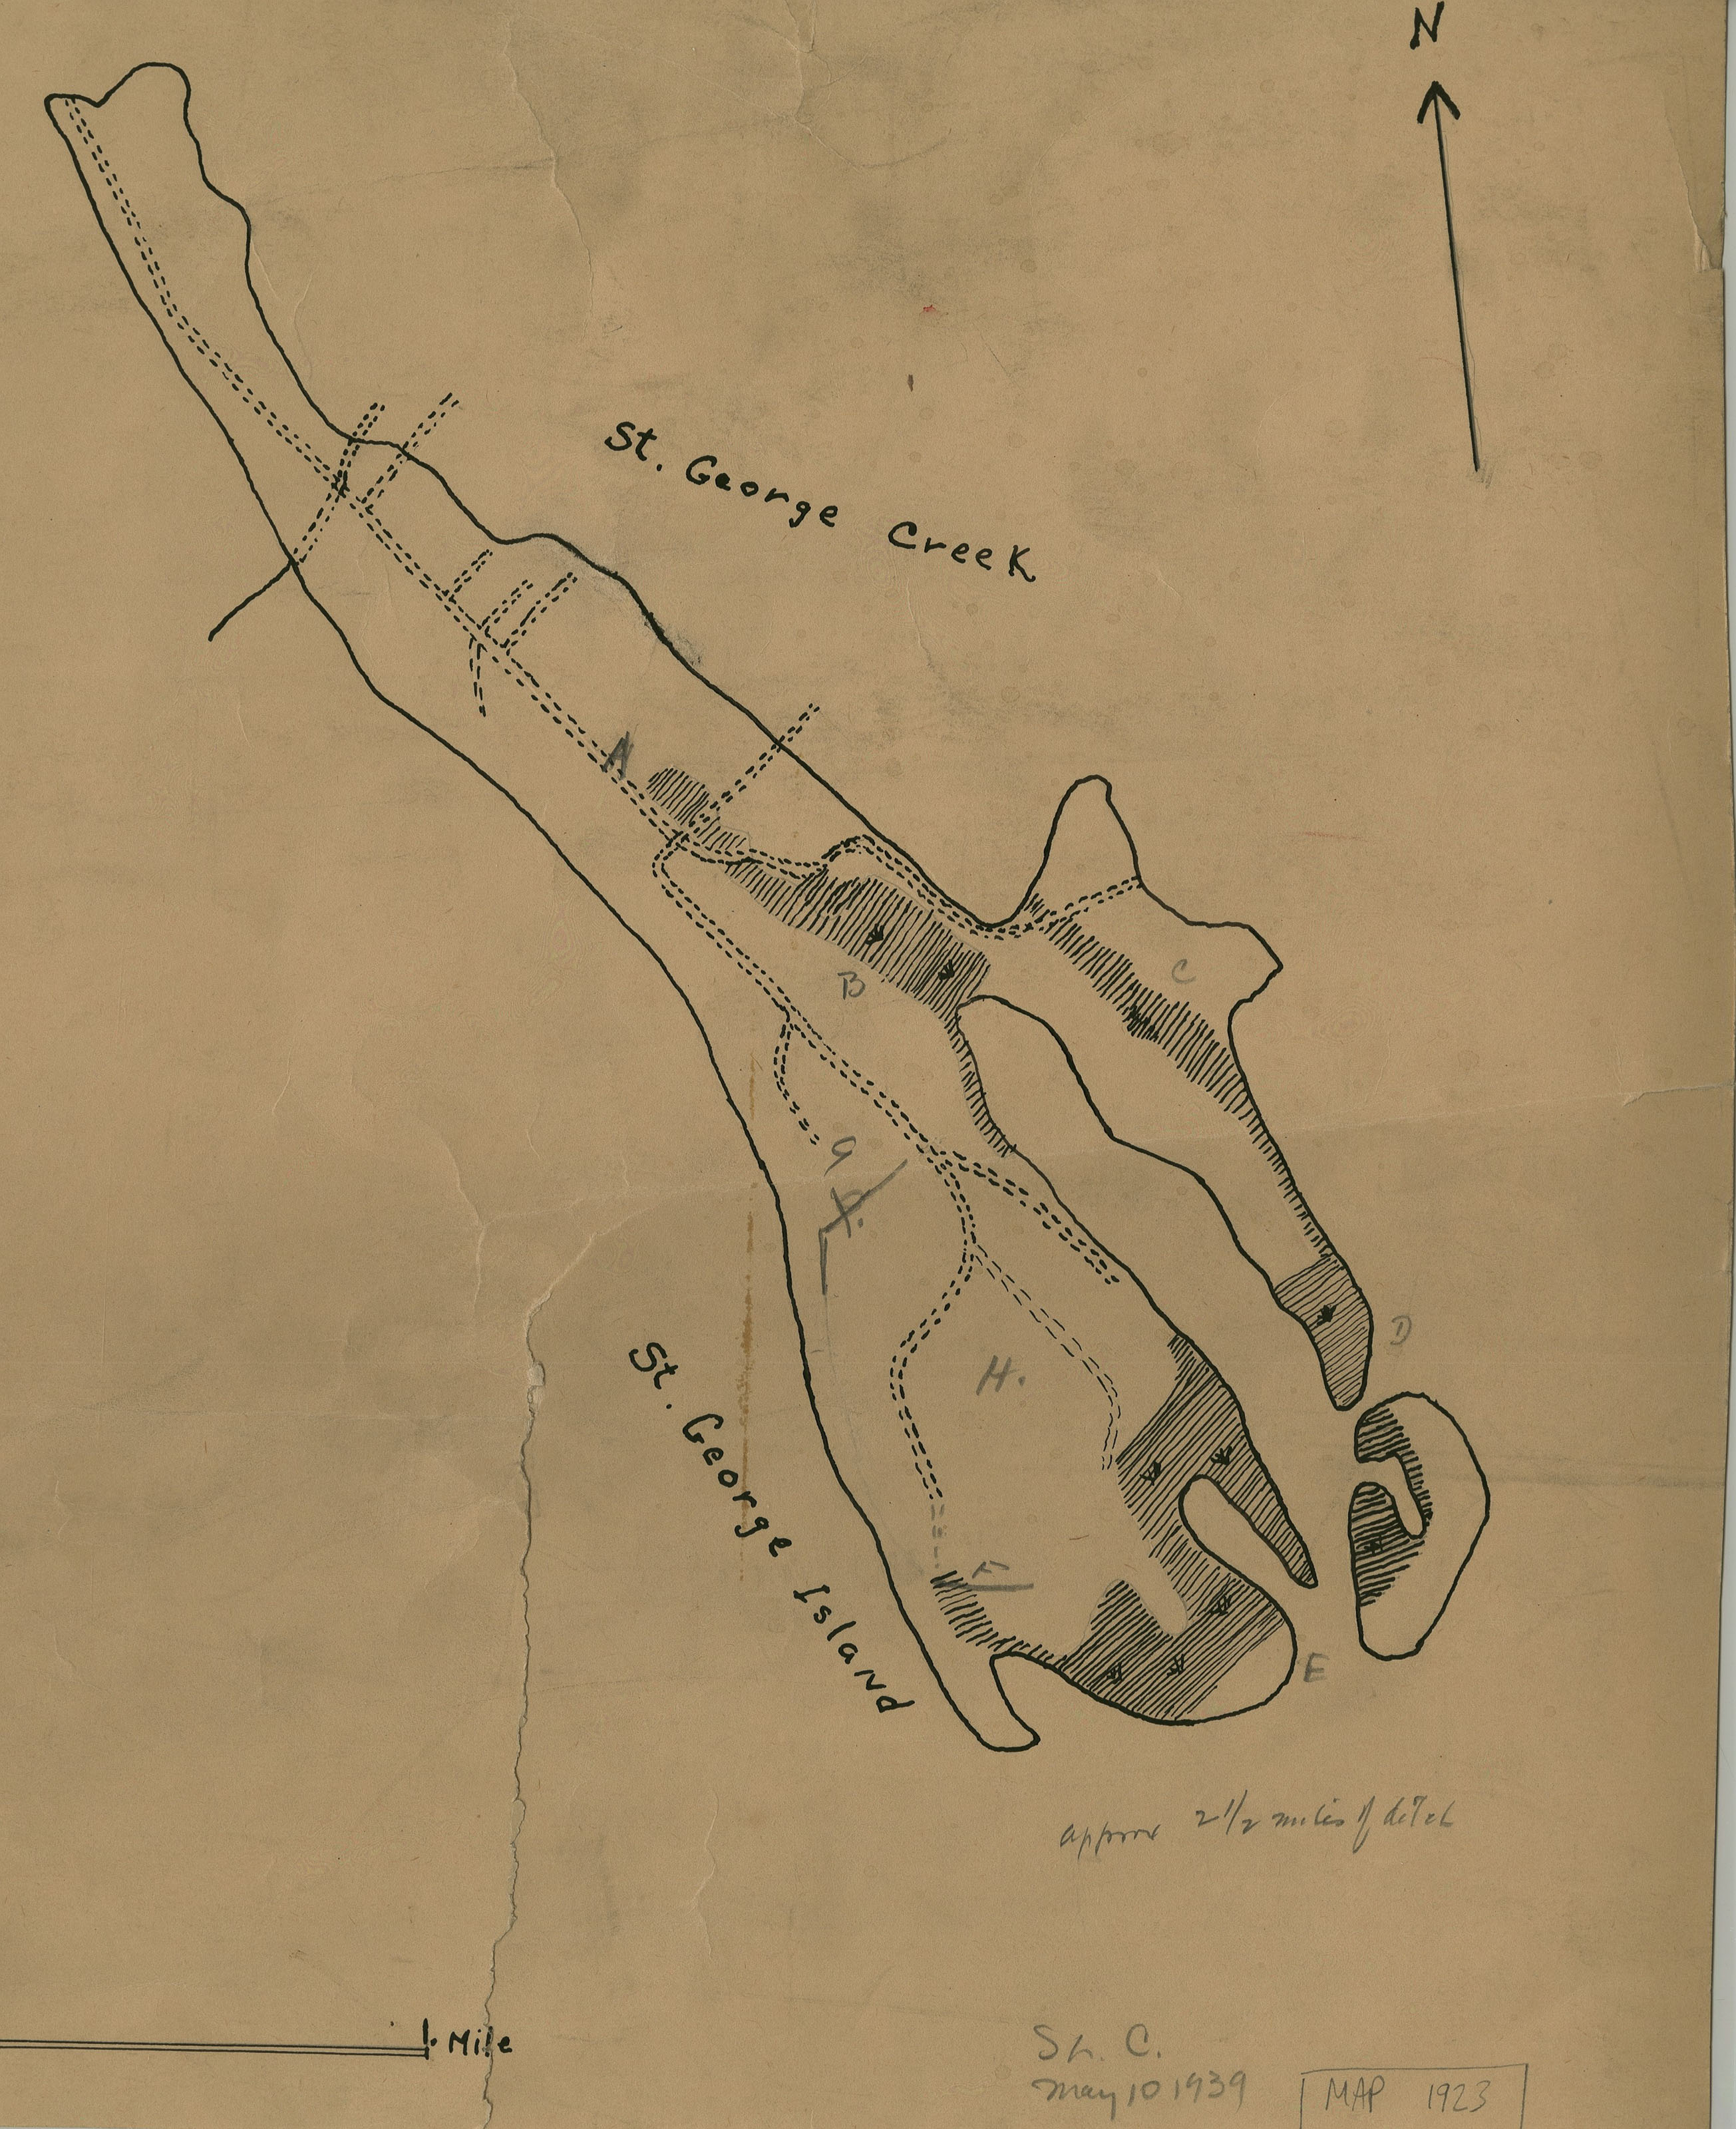 N
St. George Creek
A
B
C
G
X.
H.
D
F
E
St. George Island
approx 2 1/2 miles of ditch
1 Mile
May 10 1939
MAP 1923